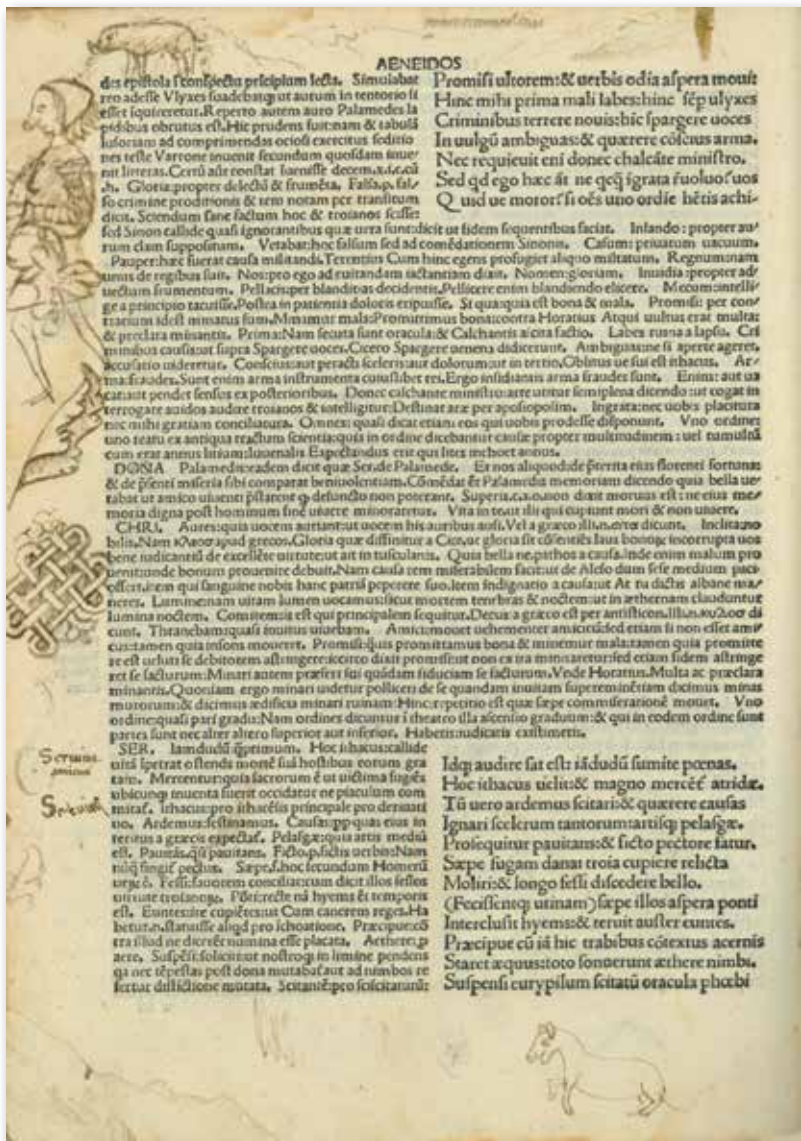 AENEIDOS
des epistola & conspectu pricipium lecta. Simulabat
ero adesse Vlyxes suadebatq; ut aurum in tentorio si
esset iquireretur. Reperto autem auro Palamedes la
pidibus obrutus est. Hic prudens fuit: nam & tabulã
lusoriam ad comprimendas ociosi exercitus seditio
nes teste Varrone inuenit secundum quosdam inue/
nit litteras.
Gloria: propter
so crimine proditionis & rem notam per transitum
dicit. Sciendum sane factum hoc & troianos scisse:
Promisi ultorem: & uerbis odia aspera moui:
Hinc mihi prima mali labes: hinc sẽp ulyxes
Criminibus terrere nouis: hic spargere uoces
In uulgũ ambiguas: & quærere cõscius arma.
Nec requieuit eni donec chalcãte ministro.
Sed qd ego hæc
Q uid ue moror? si oẽs uno ordie hẽtis achi-
sed Sinon callide quasi ignorantibus quæ uera sunt: dicit ut fidem sequentibus faciat. Infando: propter au
rum clam suppositum. Vetabat: hoc falsum sed ad comẽdationem Sinonis. Casum: priuatum uacuum.
Pauper: hæc fuerat causa militandi. Terentius Cum hinc egens profugiet aliquo militatum. Regnum: nam
unus de regibus fuit. Nos: pro ego ad euitandam iactantiam dixit. Nomen: gloriam. Inuidia: propter ad/
uectum frumentum. Pellacis: per blanditias decidentis. Pellicere enim blandiendo elicere. Mecum: intelli/
ge a principio tacuisse. Postea in patientia doloris eripuisse. Si qua: quia est bona & mala. Promisi: per con/
trarium idest minatus sum. Minamur mala: Promittimus bona: contra Horatius Atqui uultus erat multa:
& preclara minantis. Prima: Nam secuta sunt oracula: & Calchantis factio. Labes ruina a lapsu. Cri
minibus causis: ut supra Spargere uoces. Cicero Spargere uenena didicerunt. Ambiguas: ne si aperte ageret,
accusatio uideretur. Conscius: aut peracti sceleris: aut dolorum: ut in tertio. Oblitus ue sui est ithacus. Ar/
ma: fraudes. Sunt enim arma instrumenta cuiuslibet rei. Ergo insidiantis arma fraudes sunt. Enim: aut ua
cat: aut pendet sensus ex posterioribus. Donec calchante ministro: arte utitur semiplena dicendo: ut cogat in
terrogare auidos audire troianos & intelligitur: Destinat aræ per aposioposim. Ingrata: nec uobis placitura
nec mihi gratiam conciliatura. Omnes: quasi dicat etiam eos qui uobis prodesse disponunt. Vno ordine:
uno reatu ex antiqua tractum scientia: quia in ordine dicebantur causæ propter multitudinem: uel tumultũ
cum erat annus litium: Iuuenalis Expectandus erit qui lites inchoet annus.
DONA Palamedis: eadem dicit quæ Ser. de Palamede. Et nos aliquod: de pterita eius florenti fortuna:
& de psenti miseria sibi comparat beniuolentiam. Cõmẽdat Palamedis memoriam dicendo quia bella ue
tabat ut amico uiuenti pstarent defuncto non poterant. non dixit mortuus est: ne eius me/
moria digna post hominum finẽ uiuere minoraretur. Vita in te: ut illi qui cupiunt mori & non uiuere.
CHRI. Aures: quia uocem auriant: ut uocem his auribus ausi. Vel a græco dicunt. Inclita: no
bilis. Nam apud grecos. Gloria quæ diffinitur a Cice. ut gloria sit cõsentiẽs laus bonoꝝ incorrupta uox
bene iudicantiũ de excellẽte uirtute: ut ait in tusculanis. Quia bella ne: pathos a causa. Inde enim malum pro
uenit: unde bonum prouenire debuit. Nam causa rem miserabilem facit: ut de Aleso dum sese medium
offert, item qui sanguine nobis hanc patriã peperere suo. Item indignatio a causa: ut At tu dictis albane ma/
neres. Lumine: nam uitam lumen uocamus: sicut mortem tenebras & noctem: ut in æthernam clauduntur
lumina noctem. Comitem: is est qui principalem sequitur. Decus a græco est per antisticon. di
cunt. Thranebam: quasi inuitus uiuebam. Amici: mouet uehementer amicicũ: sed etiam si non esset ami/
cus: tamen quia insons moueret. Promisi: quis promittamus bona & minemur mala: tamen quia promitte
re est ueluti se debitorem astringere: iccirco dixit promisi: ut non ex ira minaretur: sed etiam fidem astringe
ret se facturum: Minari autem præsert sui quãdam fiduciam se facturum. Vnde Horatius. Multa ac præclara
minantis. Quoniam ergo minari uidetur polliceri de se quandam inuitam supereminẽtiam dicimus minas
murorum: & dicimus ædificia minari ruinam: Hinc: repetitio est quæ sæpe commiserationẽ mouet. Vno
ordine: quasi pari gradu: Nam ordines dicuntur i theatro illa ascensio graduum: & qui in eodem ordine sunt
pares sunt nec alter altero superior aut inferior. Habetis: iudicatis existimatis.
SER. Iamdudũ q̃primum. Hoc ithacus: callide
uitã ipetrat ostendẽs mortẽ suã hostibus eorum gra
tam. Mercentur: quia sacrorum ẽ ut uictima fugiẽs
ubicunq; inuenta fuerit occidatur ne piaculum com
mitat̃. Ithacus: pro ithacẽsis principale pro deriuati
uo. Ardemus: festinamus. Causas: pp quas eius in
teritus a græcis expectat̃. Pelasgæ: quia artis mediũ
est. Pauitãs. q̃si pauitans. Ficto. p. fictis uerbis: Nam
nũq̃ fingit̃ pectus. Sæpe. s. hoc secundum Homerũ
Fessi: fauorem conciliat: cum dicit illos fessos
uirtute troianoꝝ. recte nã hyema ẽt temporis
est. Euntes: ire cupiẽtes: ut Cum canerem reges. Ha
betur. n. stanuisse aliqd pro ichoatione. Præcipue: cõ
tra illud ne dicerẽt numina esse placata. Aethere: p
aere. Suspẽsi: soliciti: ut nostroq; in limine pendens
qa nec tẽpestas post dona mutabat̃ aut ad nimbos re
fertur distictione mutata. Scitantẽ: pro sciscitaturũ:
Idq; audire sat est: iãdudũ sumite pœnas.
Hoc ithacus uelit: & magno mercẽt̃ atridæ.
Tũ uero ardemus scitari: & quærere causas
Ignari scelerum tantorum: artisq; pelasgæ.
Prosequitur pauitans: & ficto pectore fatur.
Sæpe fugam danai troia cupiere relicta
Moliri: & longo fessi discedere bello.
(Fecissentq; utinam) sæpe illos aspera ponti
Interclusit hyems: & terruit auster euntes.
Præcipue cũ iã hic trabibus cõtextus acernis
Staret æquus: toto sonuerunt æthere nimbi.
Suspensi eurypilum scitatũ oracula phœbi